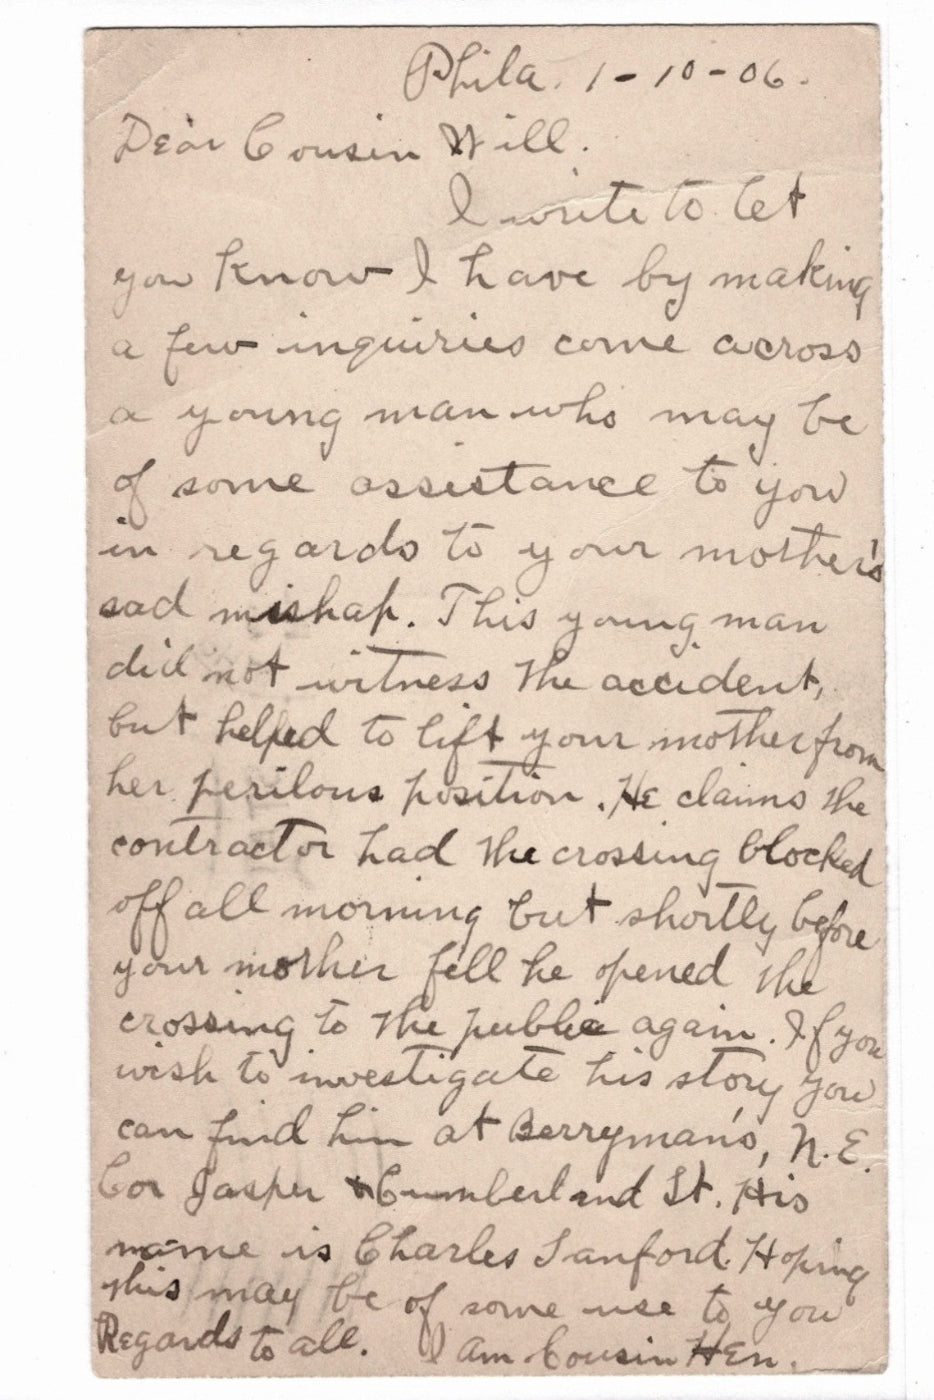 Phila. 1-10-06.
Dear Cousin Will.
I write to let
you know I have by making
a few inquiries come across
a young man who may be
of some assistance to you
in regards to your mother's
sad mishap. This young man
did not witness the accident,
but helped to lift your mother from
her perilous position. He claims the
contractor had the crossing blocked
off all morning but shortly before
your mother fell he opened the
crossing to the public again. If you
wish to investigate his story you
can find him at Berryman's, N.E.
Cor Jasper & Cumberland St. His
name is Charles Sanford. Hoping
this may be of some use to you
Regards to all. I am Cousin Hen.